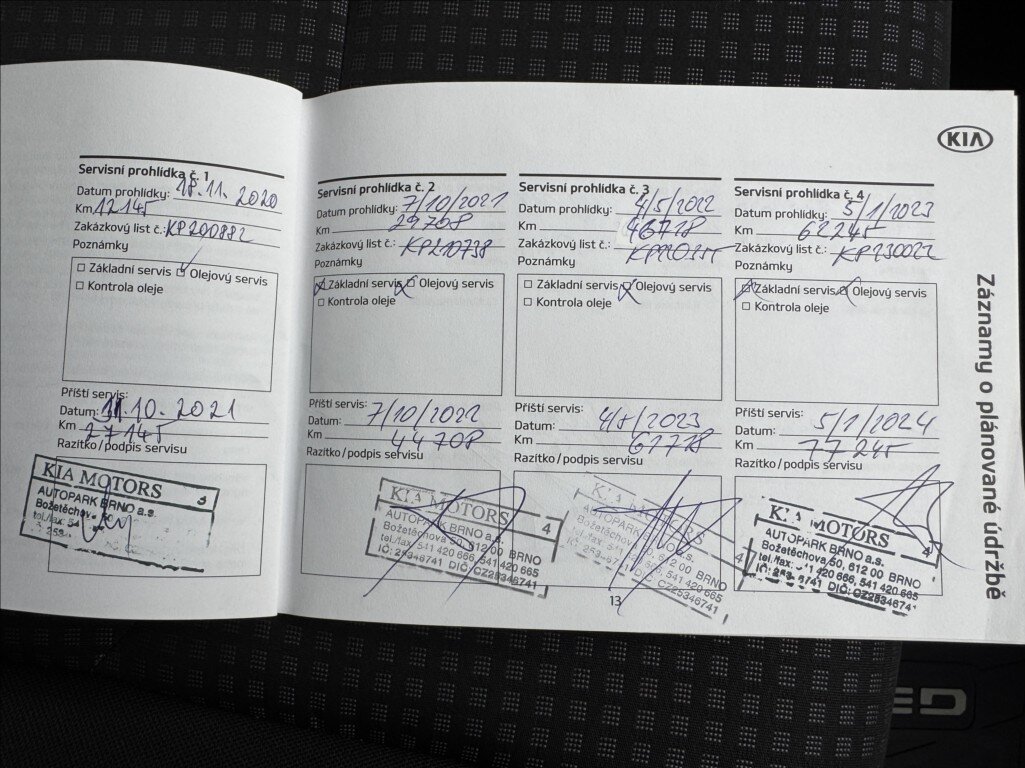 KIA
Záznamy o plánované údržbě
Servisní prohlídka č. 1
Datum prohlídky: 18.11.2020
Km 12145
Zakázkový list č.: KP200882
Poznámky
Základní servis Olejový servis
Kontrola oleje
Příští servis:
Datum: 11.10.2021
Km 27145
Razítko/podpis servisu
KIA MOTORS
3
AUTOPARK BRNO a.s.
Božetěchov
tel./fax: 54
253
Servisní prohlídka č. 2
Datum prohlídky: 7/10/2021
Km 29708
Zakázkový list č.: KP210738
Poznámky
Základní servis Olejový servis
Kontrola oleje
Příští servis:
Datum: 7/10/2022
Km 44708
Razítko/podpis servisu
KIA MOTORS
4
AUTOPARK BRNO a.s.
Božetěchova 50, 612 00 BRNO
tel./fax: 541 420 666, 541 420 665
IČ: 25346741 DIČ: CZ25346741
Servisní prohlídka č. 3
Datum prohlídky: 4/5/2022
Km 46778
Zakázkový list č.:
Poznámky
Základní servis Olejový servis
Kontrola oleje
Příští servis:
Datum: 4/5/2023
Km 61778
Razítko/podpis servisu
KIA MOTORS
4
AUTOPARK BRNO a.s.
Božetěchova 50, 612 00 BRNO
tel./fax: 541 420 666, 541 420 665
DIČ: CZ25346741
Servisní prohlídka č. 4
Datum prohlídky: 5/1/2023
Km 62245
Zakázkový list č.: KP230022
Poznámky
Základní servis Olejový servis
Kontrola oleje
Příští servis:
Datum: 5/1/2024
Km 77245
Razítko/podpis servisu
KIA MOTORS
4
AUTOPARK BRNO a.s.
Božetěchova 50, 612 00 BRNO
tel./fax: 541 420 666, 541 420 665
IČ: 253 6741 DIČ: CZ25346741
13